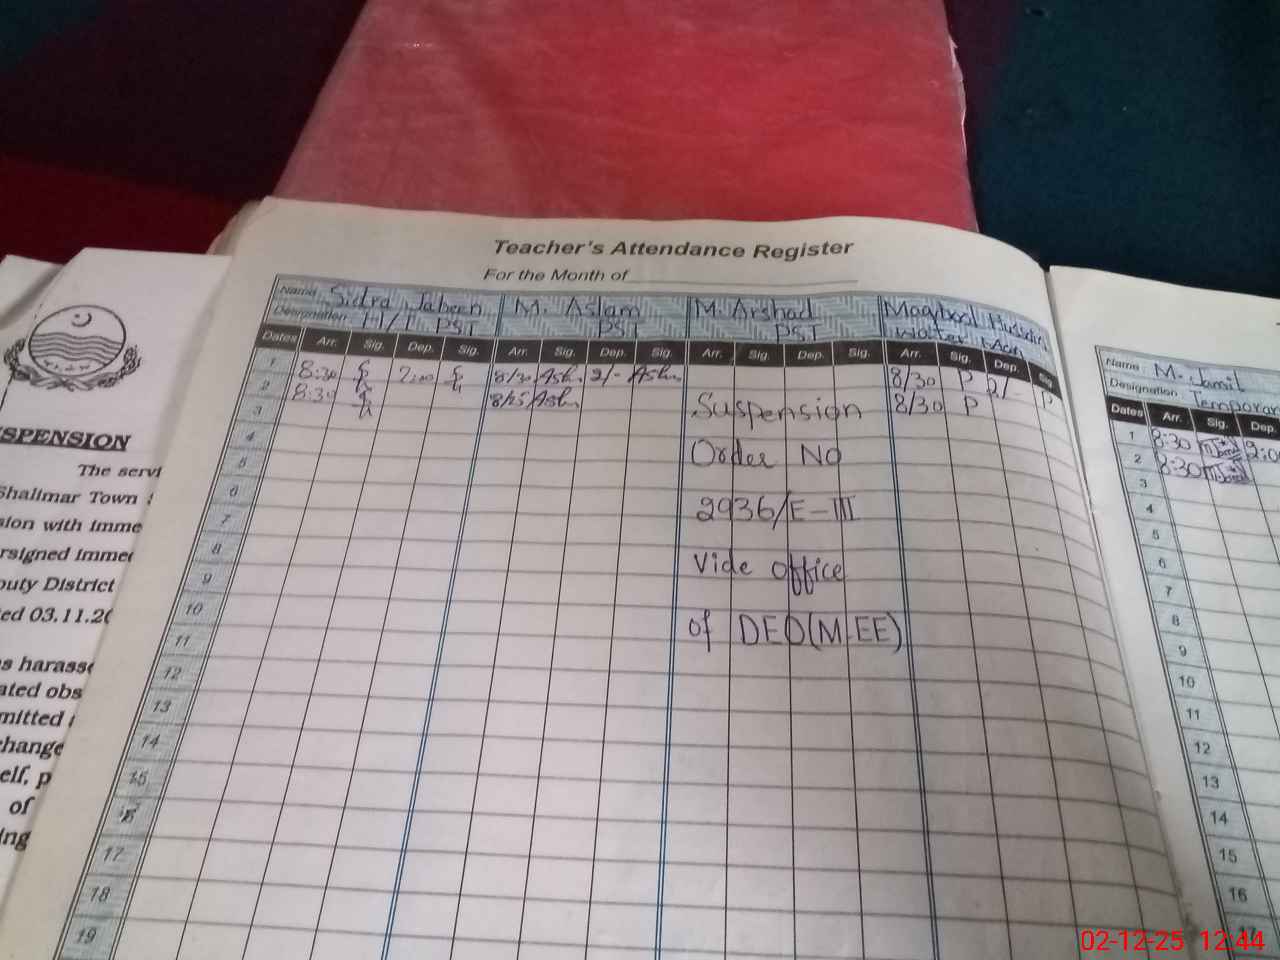 Teacher's Attendance Register
For the Month of
Name Sidra Jabeen M. Aslam M. Arshad Maqbool Hussain
Designation H/T PST PST PST Water
Dates Arr. Sig. Dep. Sig. Arr. Sig. Dep. Sig. Arr. Sig. Dep. Sig. Arr. Sig. Dep. Sig
1 8:30 2:00 8/30 Ash 2/- Ash 8/30 P 2/- P
2 8:30 8/25 Ash 8/30 P
Suspension
3
4
Order No
5
6
2936/E-III
7
8
Vide office
9
10
of DEO(M-EE)
11
12
13
14
15
17
18
19
Name : M. Jamil
Designation Temporar
Dates Arr. Sig. Dep.
1 8:30 MJamil 2:00
2 8:30 MJamil
3
4
5
6
7
8
9
10
11
12
13
14
15
16
17
SPENSION
The servi
Shalimar Town
sion with imme
rsigned immed
puty District
ted 03.11.20
s harass
ated obs
mitted
change
elf, p
of
ing
02-12-25 12:44